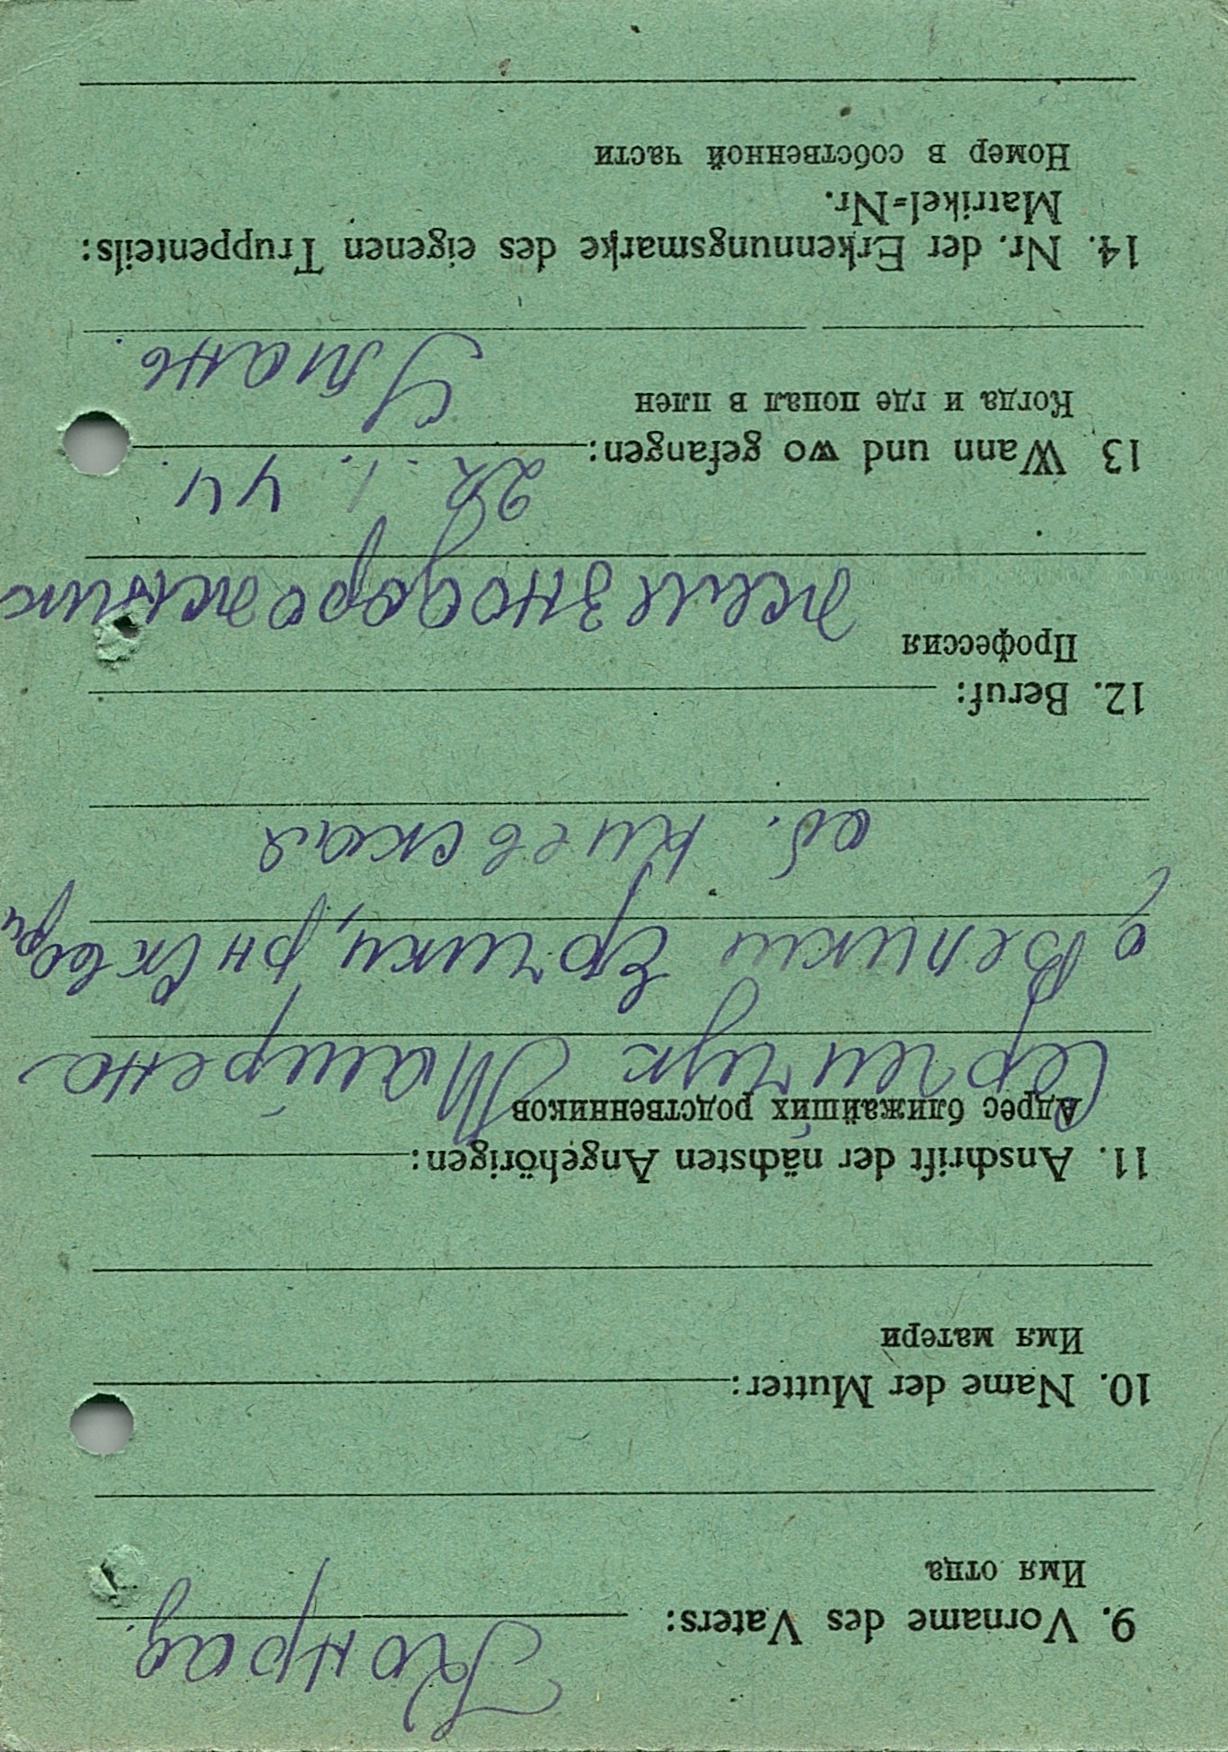 9. Vorname des Vaters: Конрад.
Имя отца
10. Name der Mutter:
Имя матери
11. Anschrift der nächsten Angehörigen:
Адрес ближайших родственников
с Великии Ерчики, рн Сквар
об. Киевская
12. Beruf:
Профессия
железнодорожник
22. 1. 44.
13 Wann und wo gefangen:
Когда и где попал в плен
Умань.
14. Nr. der Erkennungsmarke des eigenen Truppenteils:
Matrikel=Nr.
Номер в собственной части